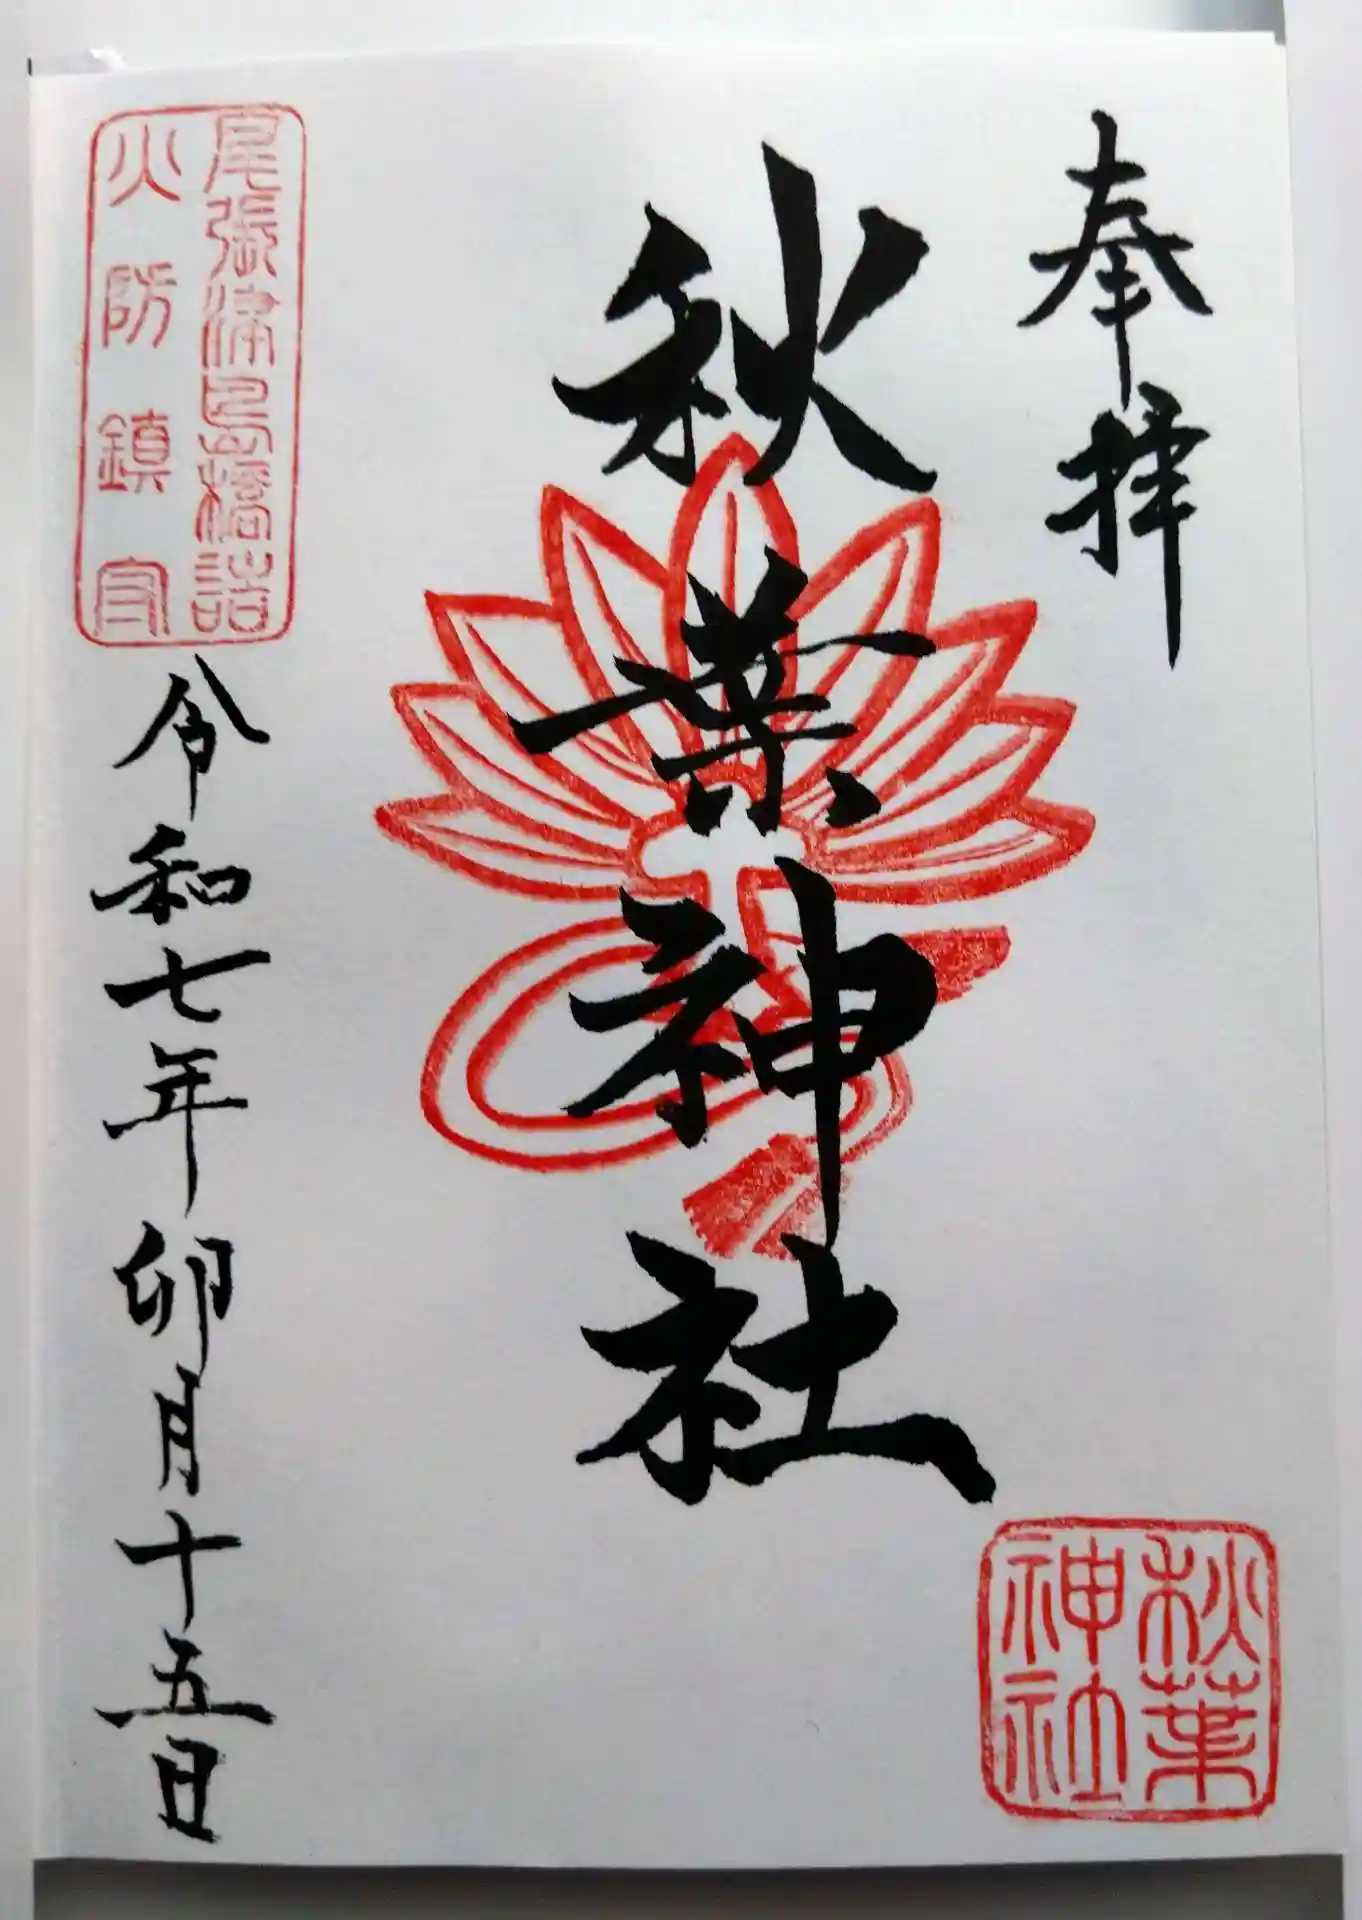 奉拝
秋葉神社
秋葉
神社
尾張津島橋詰
火防鎮守
令和七年卯月十五日